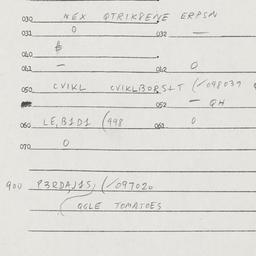 030 NEX QTRIK8ENE ERPSM
031 0 032 —
040 $
041 — 042 0
050 CVIKL CVIKLBORS±T (/098039
052 — GH
060 LE,B1D1 (498 061 0
070 0
900 P3RDA,J1S, (/097020
GGLE TOMATOES